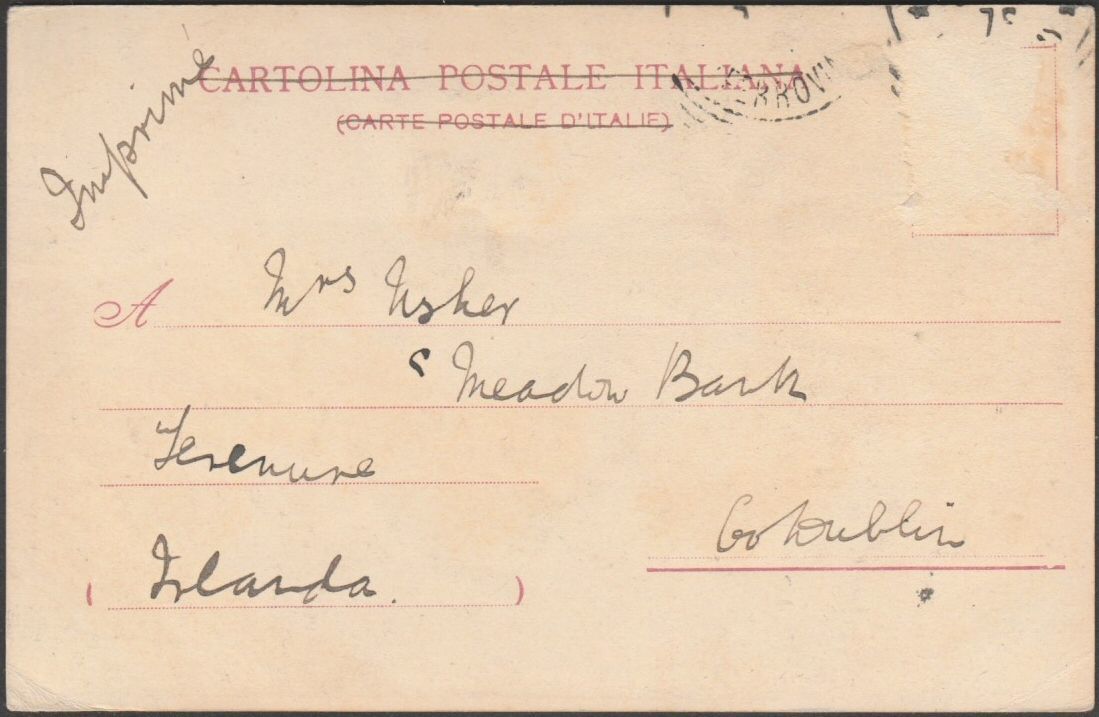 Imprimé
CARTOLINA POSTALE ITALIANA
(CARTE POSTALE D'ITALIE)
75
A Mrs Usher
Meadow Bank
Terenure
Co Dublin
( Irlanda. )